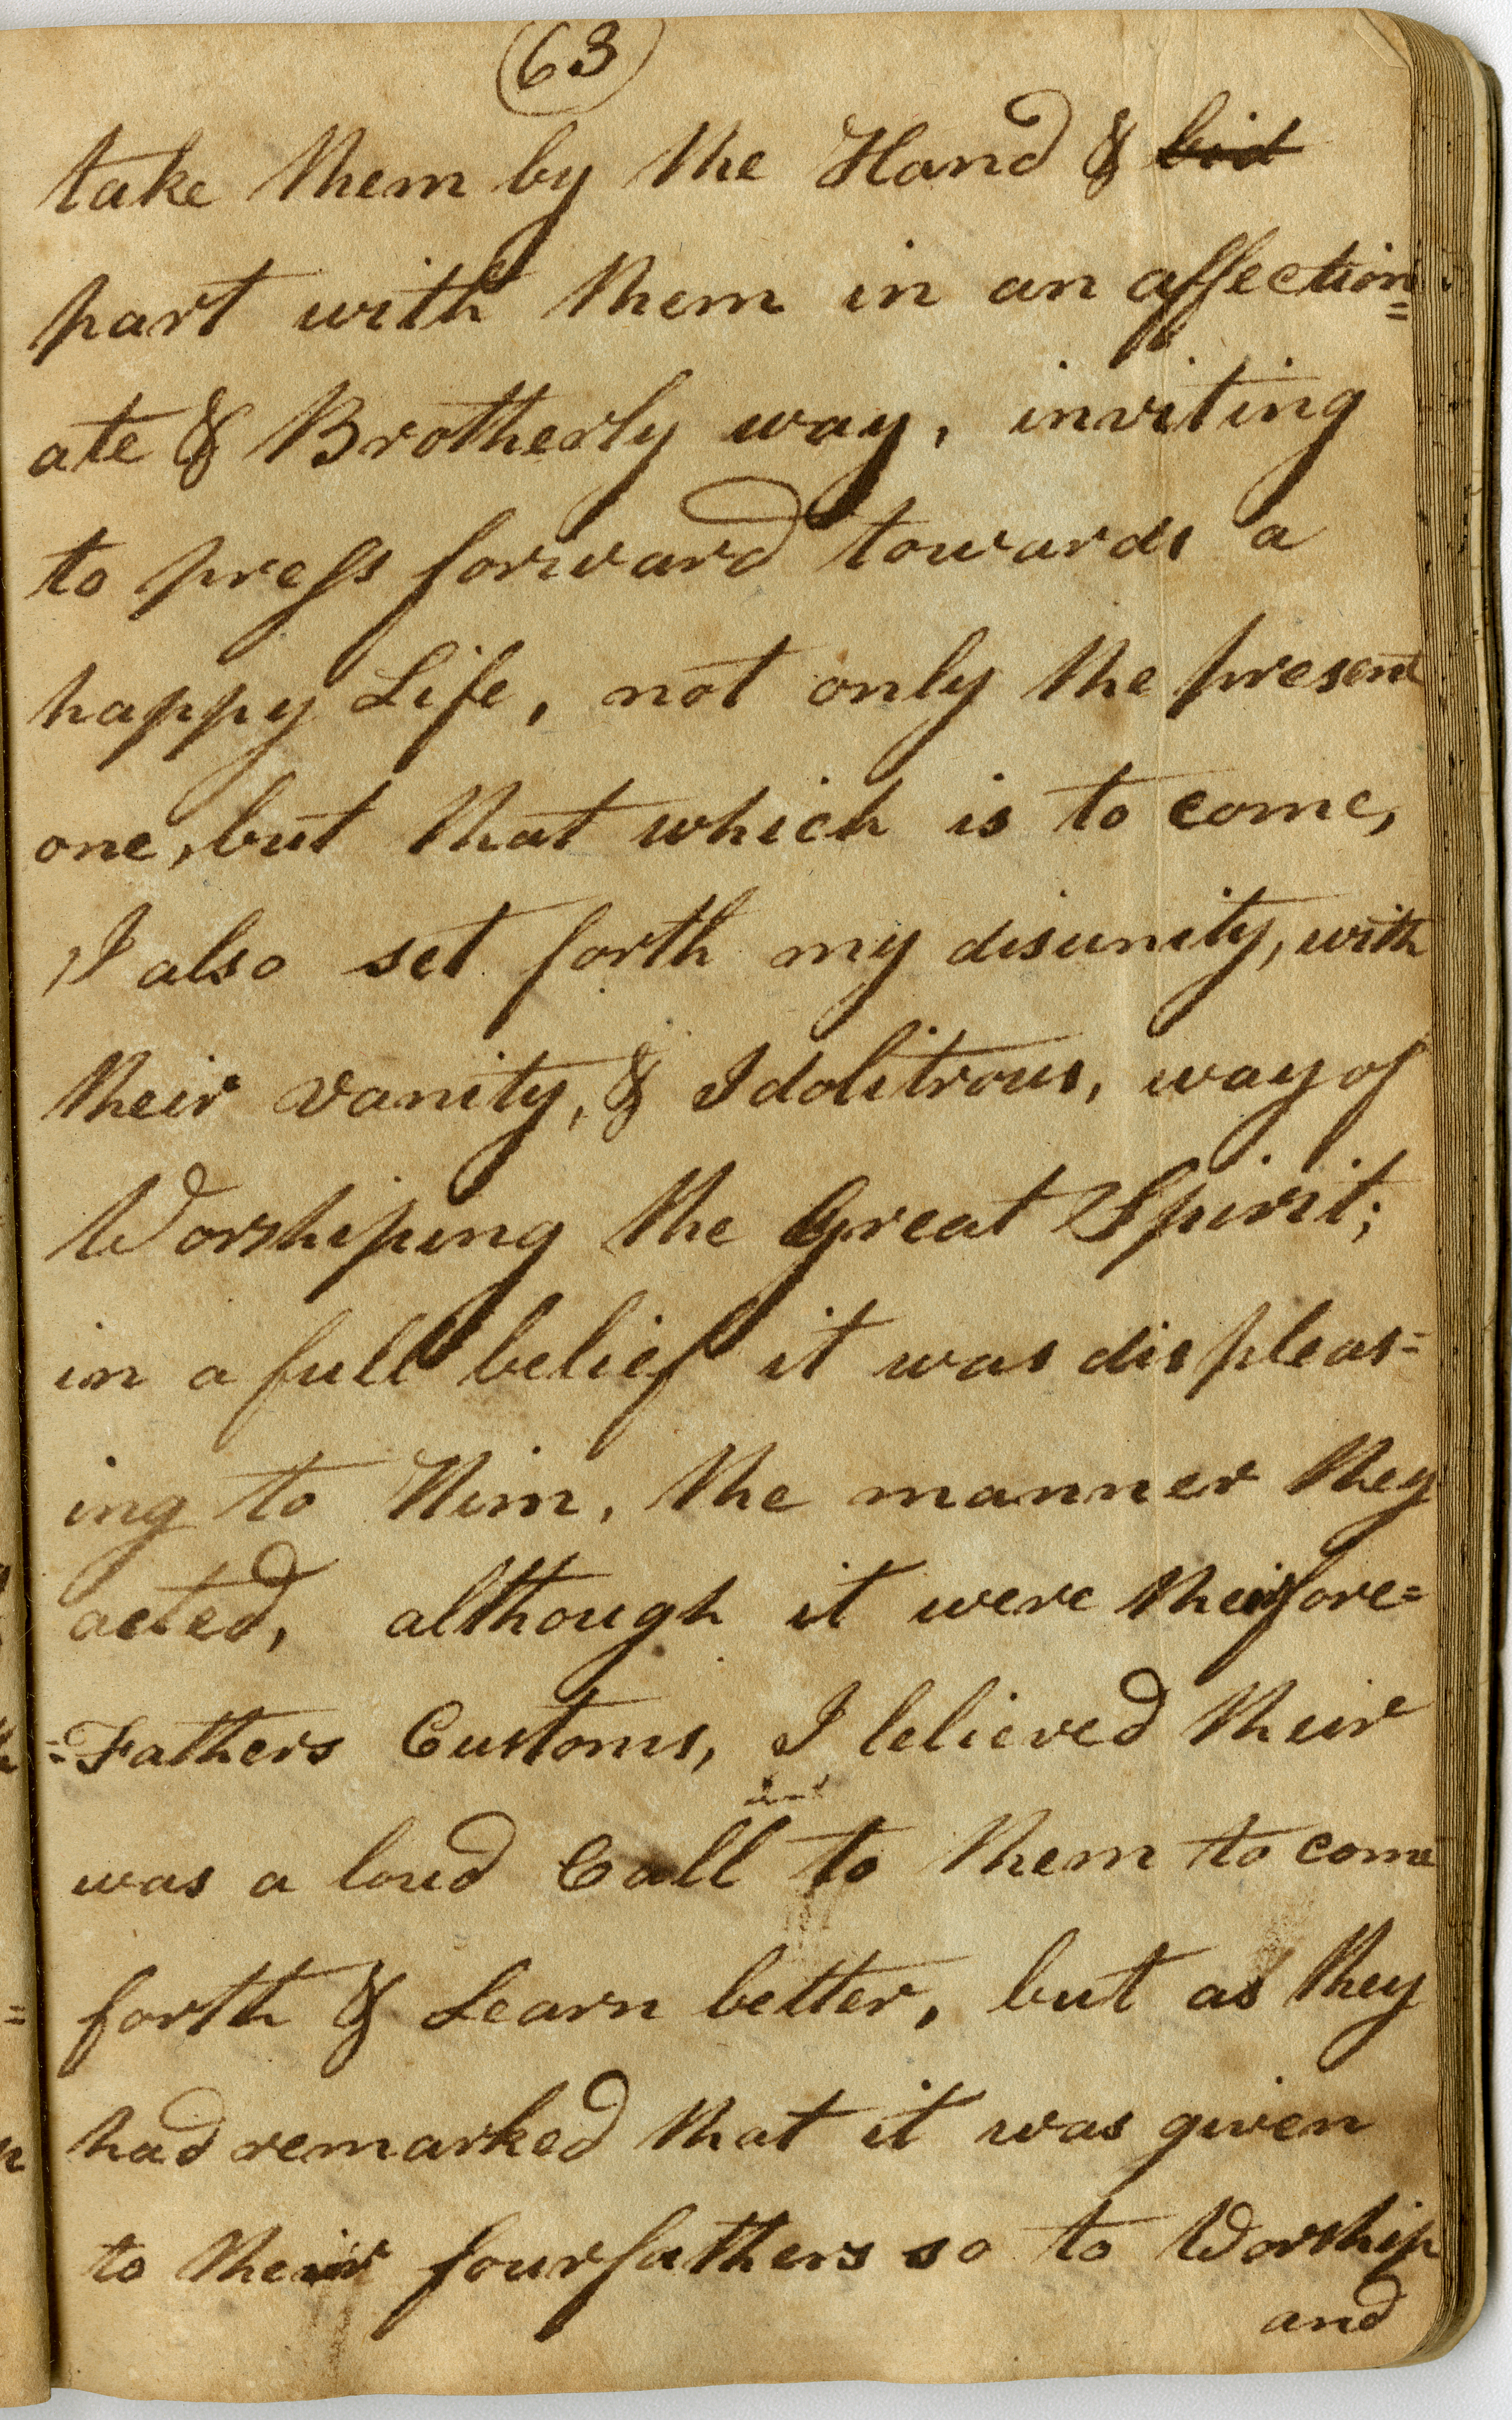 63
take them by the Hand & bid
part with them in an affection=
ate & Brotherly way, inviting
to press forward towards a
happy Life, not only the present
one, but that which is to come,
I also set forth my disunity, with
their vanity, & Idolitrous, way of
Worshiping the Great Spirit;
in a full belief it was displeas=
ing to Him, the manner they
acted, although it were their fore=
=Fathers Customs, I lelieved their
was a loud Call to them to come
forth & Learn better, but as they
had remarked that it was given
to their fourfathers so to Worship
and